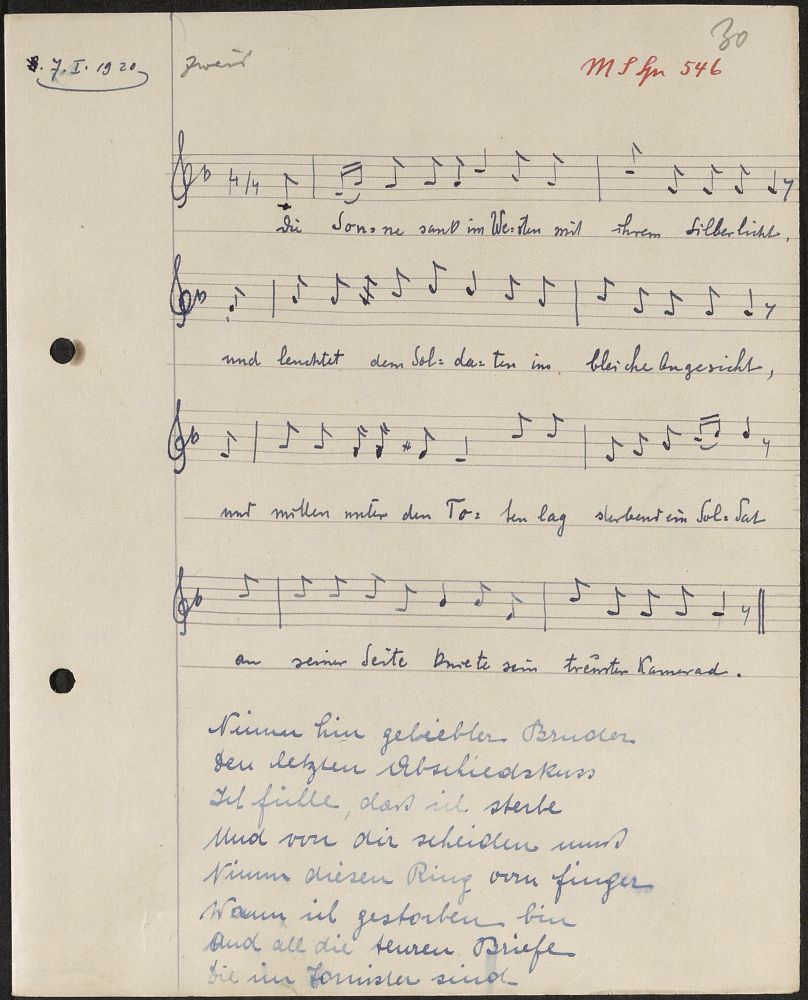 30
7. I. 1920
MS Gr 546
4/4
Die Son=ne sank im We=sten mit ihrem Silberlicht,
und leuchtet dem Sol=da=ten ins bleiche Angesicht,
und mitten unter den To=ten lag sterbend ein Sol=dat
an seiner Seite kniete sein treuster Kamerad.
Nimm hin geliebter Bruder
Den letzten Abschiedskuss
Ich fühle, dass ich sterbe
Und von dir scheiden muss
Nimm diesen Ring vom finger
Wann ich gestorben bin
Und all die teuren Briefe
Die im Tornister sind